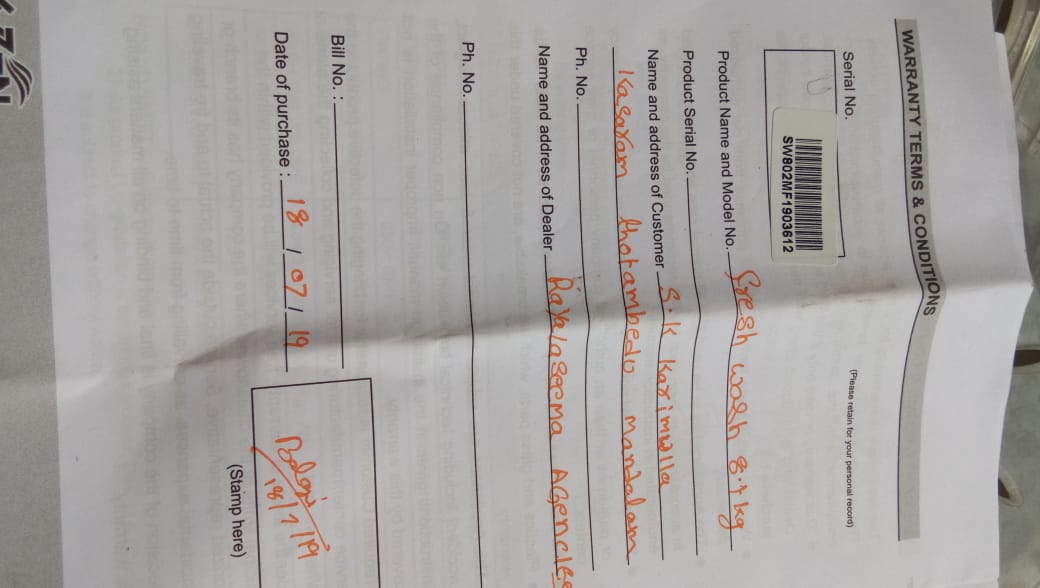 WARRANTY TERMS & CONDITIONS
(Please retain for your personal record)
Serial No.
SW802MF1903612
Product Name and Model No. Fresh wash 8.7 kg
Product Serial No.
Name and address of Customer S.K Karimulla
Kasaram thotambedu mandalam
Ph. No.
Name and address of Dealer Rayalaseema Agencies
Ph. No.
Bill No. :
Date of purchase : 18 / 07 / 19
18/7/19
(Stamp here)